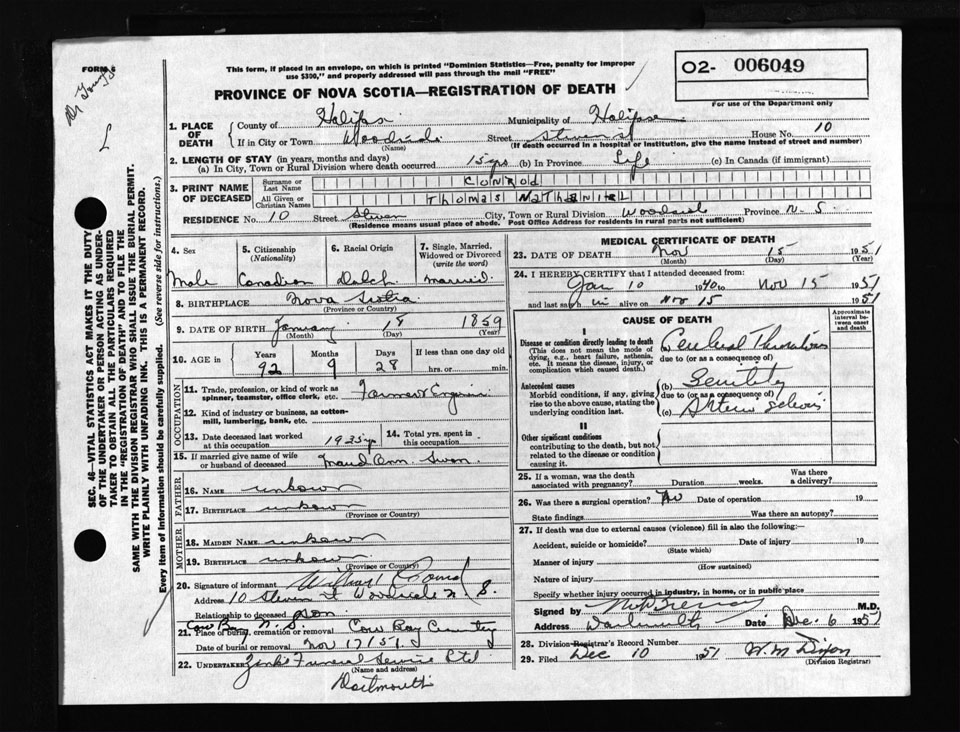 FORM 6
Dr Young's
L
This form, if placed in an envelope, on which is printed "Dominion Statistics—Free, penalty for improper
use $300," and properly addressed will pass through the mail "FREE"
O2- 006049
For use of the Department only
PROVINCE OF NOVA SCOTIA—REGISTRATION OF DEATH
SEC. 46—VITAL STATISTICS ACT MAKES IT THE DUTY
OF THE UNDERTAKER OR PERSON ACTING AS UNDER-
TAKER TO OBTAIN ALL THE PARTICULARS REQUIRED
IN THE "REGISTRATION OF DEATH" AND TO FILE THE
SAME WITH THE DIVISION REGISTRAR WHO SHALL ISSUE THE BURIAL PERMIT.
WRITE PLAINLY WITH UNFADING INK. THIS IS A PERMANENT RECORD.
Every item of information should be carefully supplied. (See reverse side for instructions.)
1. PLACE OF DEATH
County of Halifax Municipality of Halifax
If in City or Town Woodside Street Steven St House No. 10
(Name) (If death occurred in a hospital or institution, give the name instead of street and number)
2. LENGTH OF STAY (in years, months and days)
(a) In City, Town or Rural Division where death occurred 15 yrs (b) In Province Life (c) In Canada (if immigrant)
3. PRINT NAME OF DECEASED
Surname or Last Name CONROD
All Given or Christian Names Thomas NATHANIEL
RESIDENCE No. 10 Street Steven City, Town or Rural Division Woodside Province N-S.
(Residence means usual place of abode. Post Office Address for residents in rural parts not sufficient)
4. Sex
5. Citizenship (Nationality)
6. Racial Origin
7. Single, Married, Widowed or Divorced (write the word)
Male Canadian Dutch married
8. BIRTHPLACE Nova Scotia
(Province or Country)
9. DATE OF BIRTH January 18 1859
(Month) (Day) (Year)
10. AGE in Years Months Days If less than one day old
92 9 28 hrs. or min.
OCCUPATION
11. Trade, profession, or kind of work as
spinner, teamster, office clerk, etc. Farmer & Engineer
12. Kind of industry or business, as cotton-
mill, lumbering, bank, etc.
13. Date deceased last worked
at this occupation 1925 yr
14. Total yrs. spent in
this occupation
15. If married give name of wife
or husband of deceased Maud Ann Swan.
FATHER
16. NAME unknown
17. BIRTHPLACE unknown
(Province or Country)
MOTHER
18. MAIDEN NAME unknown
19. BIRTHPLACE unknown
(Province or Country)
20. Signature of informant William Conrod
Address 10 Steven St Woodside N S.
Relationship to deceased son
Cow Bay N. S.
21. Place of burial, cremation or removal Cow Bay Cemetery
Date of burial or removal Nov 17/51
22. UNDERTAKER Zink's Funeral Service Ltd
(Name and address)
Dartmouth
MEDICAL CERTIFICATE OF DEATH
23. DATE OF DEATH Nov 15 1951
(Month) (Day) (Year)
24. I HEREBY CERTIFY that I attended deceased from:
Jan 10 1940 to Nov 15 1951
and last saw him alive on Nov 15 1951
CAUSE OF DEATH
Approximate interval between onset and death
I
Disease or condition directly leading to death
(This does not mean the mode of
dying, e.g., heart failure, asthenia,
etc. It means the disease, injury, or
complication which caused death.)
Cerebral Thrombosis
due to (or as a consequence of)
Antecedent causes
Morbid conditions, if any, giving
rise to the above cause, stating the
underlying condition last.
(b) Senility
due to (or as a consequence of)
(c) Arterio Sclerosis
II
Other significant conditions
contributing to the death, but not
related to the disease or condition
causing it.
25. If a woman, was the death
associated with pregnancy? Duration weeks. Was there a delivery?
26. Was there a surgical operation? No Date of operation 19
State findings Was there an autopsy?
27. If death was due to external causes (violence) fill in also the following:—
Accident, suicide or homicide? Date of injury 19
(State which)
Manner of injury
(How sustained)
Nature of injury
Specify whether injury occurred in industry, in home, or in public place
Signed by M.D.
Address Dartmouth Date Dec. 6 1951
28. Division Registrar's Record Number
29. Filed Dec 10 1951 W. M Dixon
(Division Registrar)